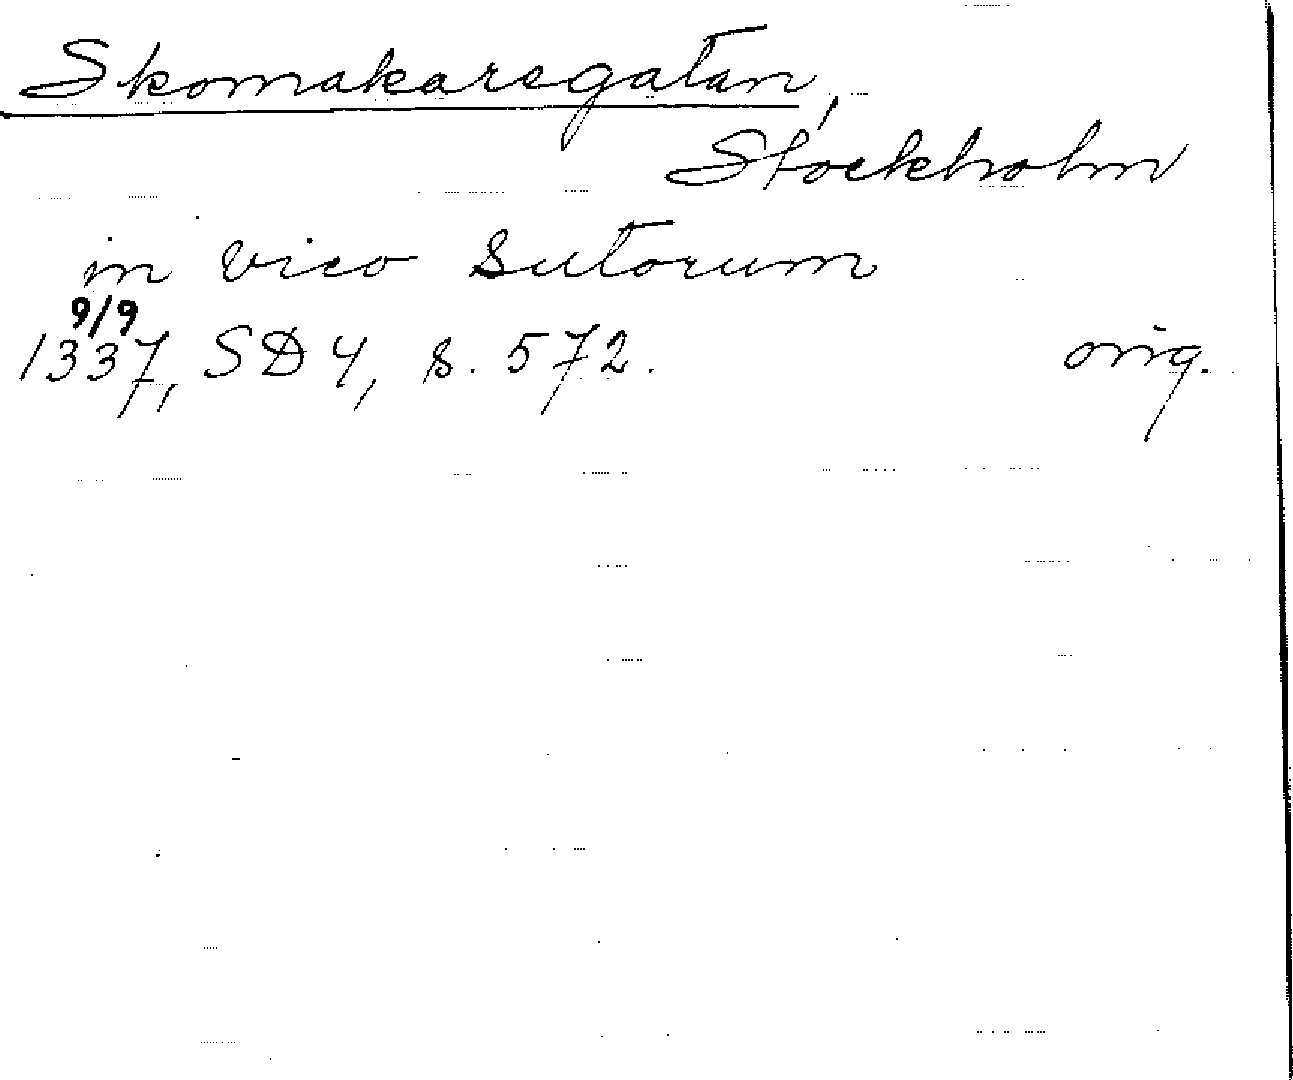 Skomakaregatan,
Stockholm
in vico Sutorum
9/9
1337, SD 4, s. 572. orig.